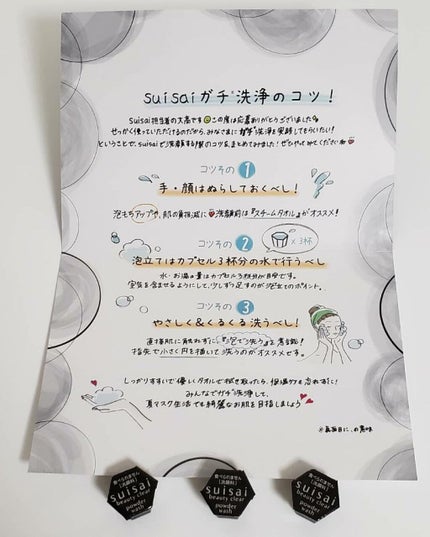 suisaiガチ*洗浄のコツ!
suisai担当者の大高です この度は応募ありがとうございました
せっかく使っていただけるのだから、みなさまにガチ*洗浄を実践してもらいたい!
ということで、suisaiで洗顔する際のコツをまとめてみました! ぜひやってみてください
コツその 1
手・顔はぬらしておくべし!
泡もちアップや、肌の負担減に 洗顔前は『スチームタオル』がオススメ!
コツその 2
×3杯
泡立てはカプセル3杯分の水で行うべし
水・お湯の量はカプセル3杯分が目安です。
空気を含ませるようにして、少しずつ足すのが泡立てのポイント。
コツその 3
やさしく&くるくる洗うべし!
直接肌に触れずに『泡で洗う』を意識!
指先で小さく円を描いて洗うのがオススメです。
しっかりすすいで優しくタオルで拭き取ったら、保湿ケアも忘れずに!
みんなでガチ*洗浄して、
夏マスク生活でも綺麗なお肌を目指しましょう
*真面目に、の意味
食べられません
(洗顔料)
suisai
beauty clear
powder
wash
食べられません
(洗顔料)
suisai
beauty clear
powder
wash
食べられません
(洗顔料)
suisai
beauty clear
powder
wash